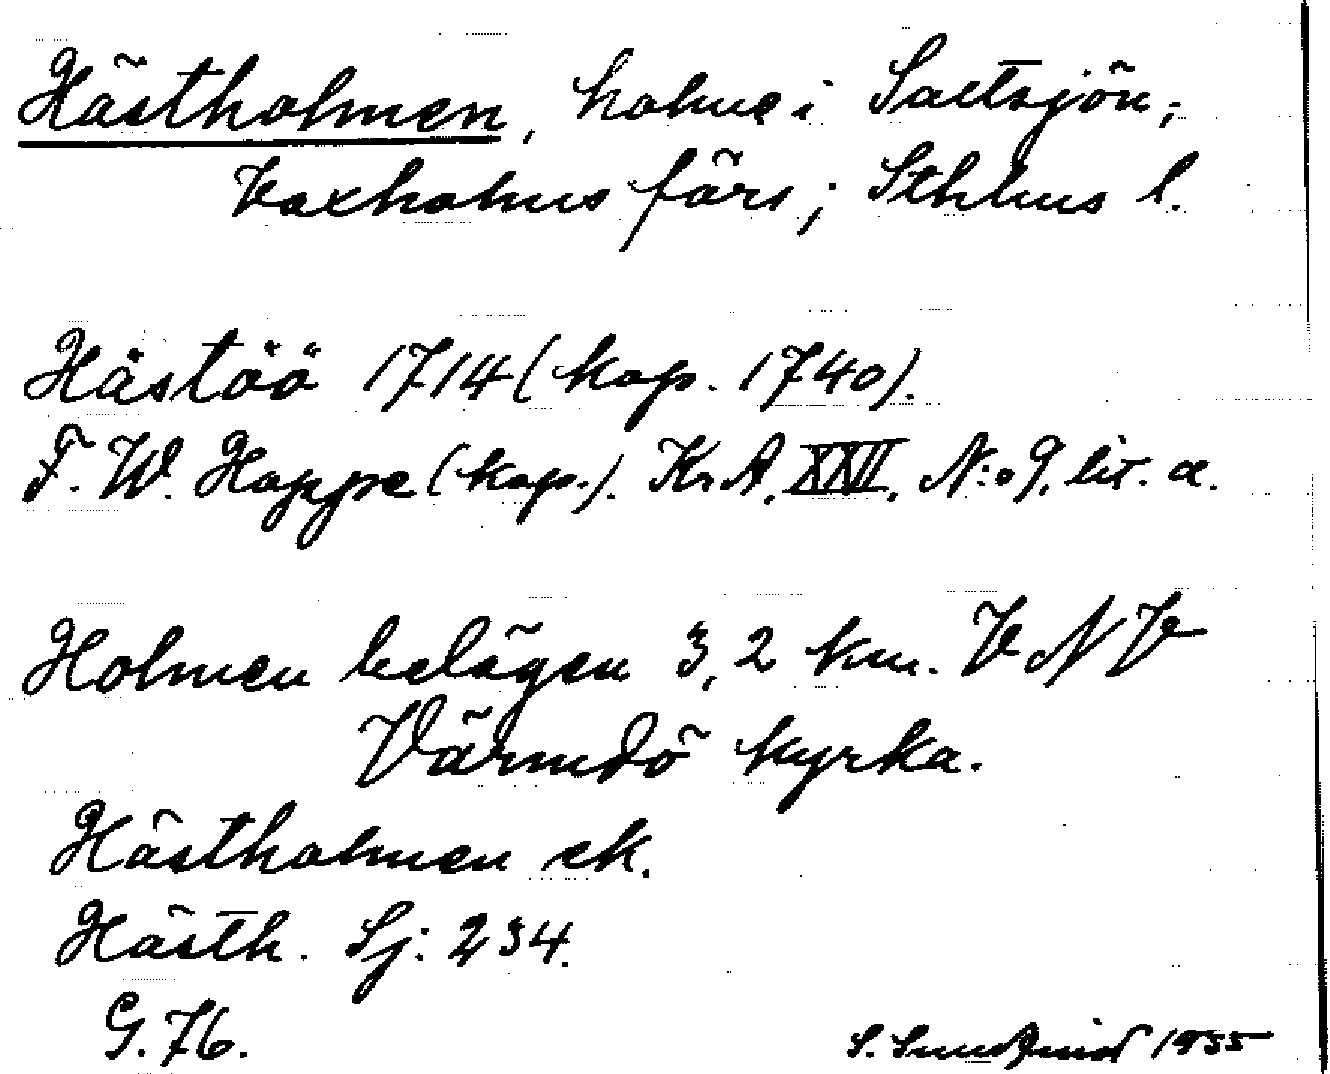 Hästholmen, holme i Saltsjön;
Vaxholms förs; Sthlms l.
Hästöö 1714 (kop. 1740).
F. W. Hoppe (kop.). KrA, XXVI, N:o 9, lit. a.
Holmen belägen 3,2 km. VNV
Värmdö kyrka.
Hästholmen ek.
Hästh. Sj: 234.
G. 76.
S. 1955